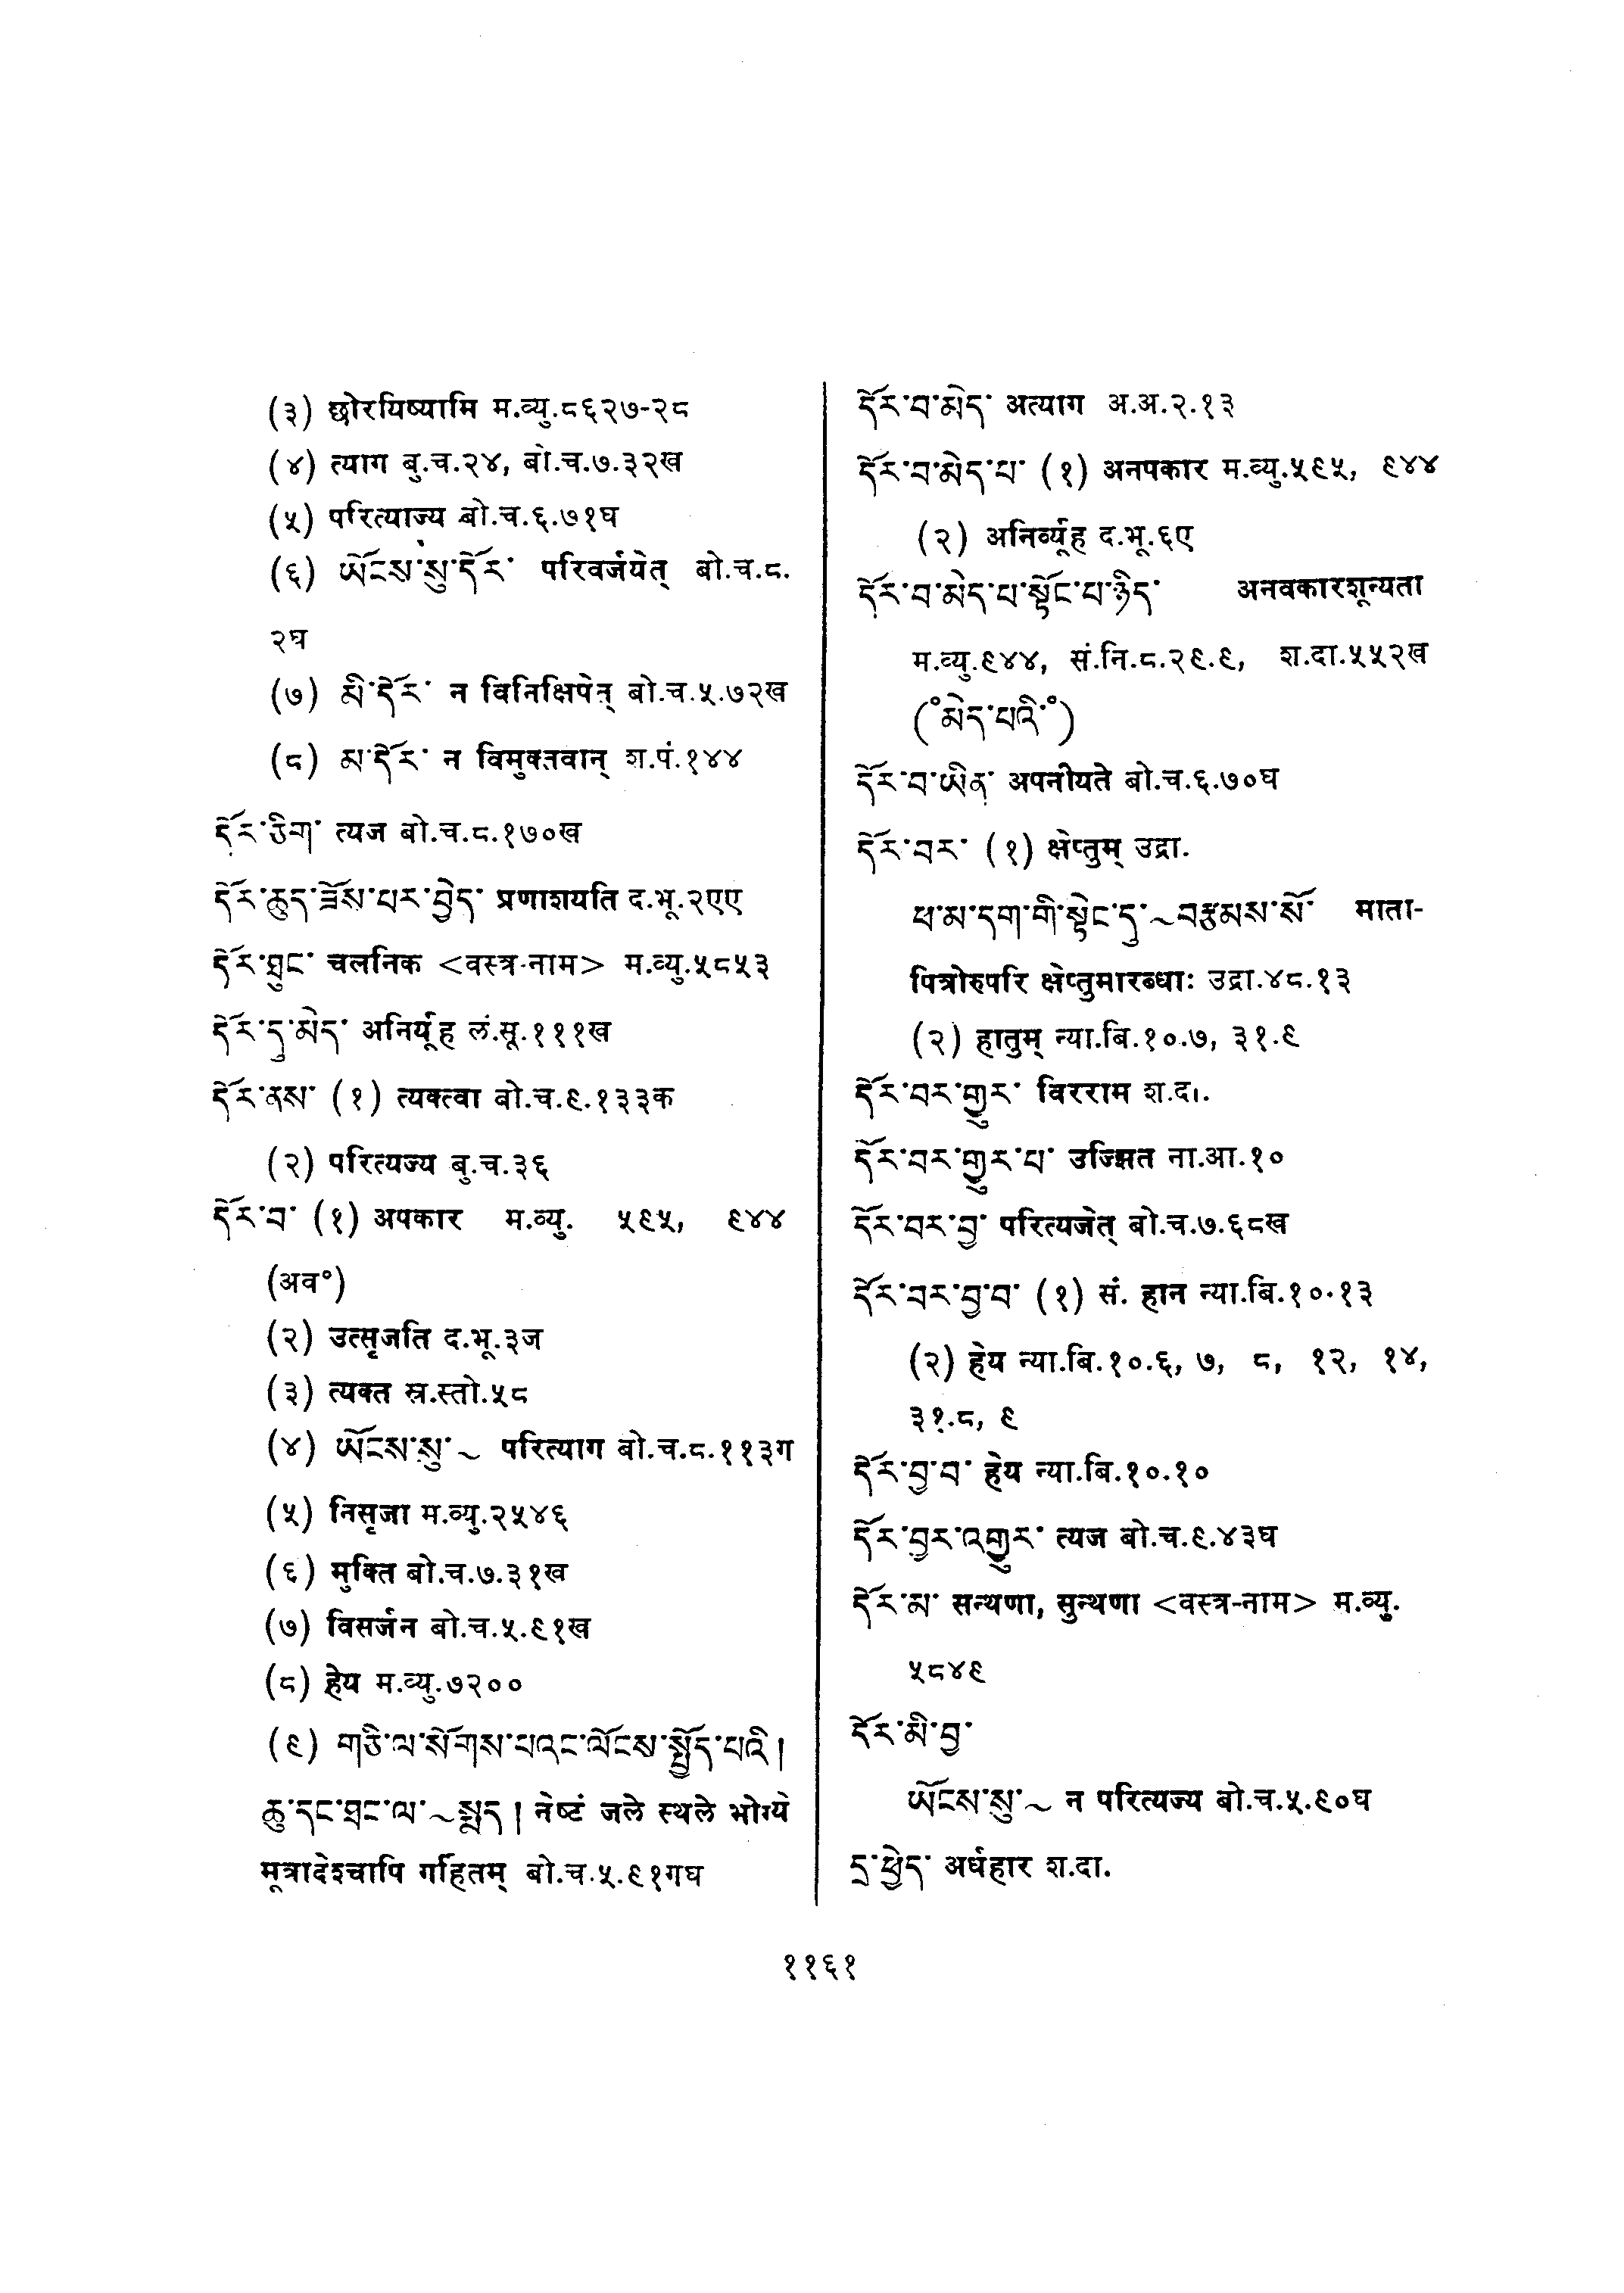 (३) छोरयिष्यामि म.व्यु.८६२७-२८
(४) त्याग बु.च.२४, बो.च.७.३२ख
(५) परित्याज्य बो.च.६.७१घ
(६) ཡོངས་སུ་དོར་ परिवर्जयेत् बो.च.८.
२घ
(७) མི་དོར་ न विनिक्षिपेत् बो.च.५.७२ख
(८) མ་དོར་ न विमुक्तवान् श.पं.१४४
དོར་ཅིག་ त्यज बो.च.८.१७०ख
དོར་ཆུད་ཟོས་པར་བྱེད་ प्रणाशयति द.भू.२एए
དོར་ཐུང་ चलनिक <वस्त्र-नाम> म.व्यु.५८५३
དོར་དུ་མེད་ अनिर्यूह लं.सू.१११ख
དོར་ནས་ (१) त्यक्त्वा बो.च.९.१३३क
(२) परित्यज्य बु.च.३६
དོར་བ་ (१) अपकार म.व्यु. ५९५, ९४४
(अव°)
(२) उत्सृजति द.भू.३ज
(३) त्यक्त स्र.स्तो.५८
(४) ཡོངས་སུ་~ परित्याग बो.च.८.११३ग
(५) निसृजा म.व्यु.२५४६
(६) मुक्ति बो.च.७.३१ख
(७) विसर्जन बो.च.५.९१ख
(८) हेय म.व्यु.७२००
(९) གཅི་ལ་སོགས་པའང་ལོངས་སྤྱོད་པའི།
ཆུ་དང་ཐང་ལ་~སྨད། नेष्टं जले स्थले भोग्ये
मूत्रादेश्चापि गर्हितम् बो.च.५.९१गघ
དོར་བ་མེད་ अत्याग अ.अ.२.१३
དོར་བ་མེད་པ་ (१) अनपकार म.व्यु.५९५, ९४४
(२) अनिर्व्यूह द.भू.६ए
དོར་བ་མེད་པ་སྟོང་པ་ཉིད་ अनवकारशून्यता
म.व्यु.९४४, सं.नि.८.२९.९, श.दा.५५२ख
(°མེད་པའི་°)
དོར་བ་ཡིན་ अपनीयते बो.च.६.७०घ
དོར་བར་ (१) क्षेप्तुम् उद्रा.
ཕ་མ་དག་གི་སྟེང་དུ་~བརྩམས་སོ་ माता-
पित्रोरुपरि क्षेप्तुमारब्धाः उद्रा.४८.१३
(२) हातुम् न्या.बि.१०.७, ३१.९
དོར་བར་གྱུར་ विरराम श.दा.
དོར་བར་གྱུར་པ་ उज्झित ना.आ.१०
དོར་བར་བྱ་ परित्यजेत् बो.च.७.६८ख
དོར་བར་བྱ་བ་ (१) सं. हान न्या.बि.१०.१३
(२) हेय न्या.बि.१०.६, ७, ८, १२, १४,
३१.८, ९
དོར་བྱ་བ་ हेय न्या.बि.१०.१०
དོར་བྱར་འགྱུར་ त्यज बो.च.९.४३घ
དོར་མ་ सन्थणा, सुन्थणा <वस्त्र-नाम> म.व्यु.
५८४९
དོར་མི་བྱ་
ཡོངས་སུ་~ न परित्यज्य बो.च.५.९०घ
དྲ་ཕྱེད་ अर्धहार श.दा.
११६१